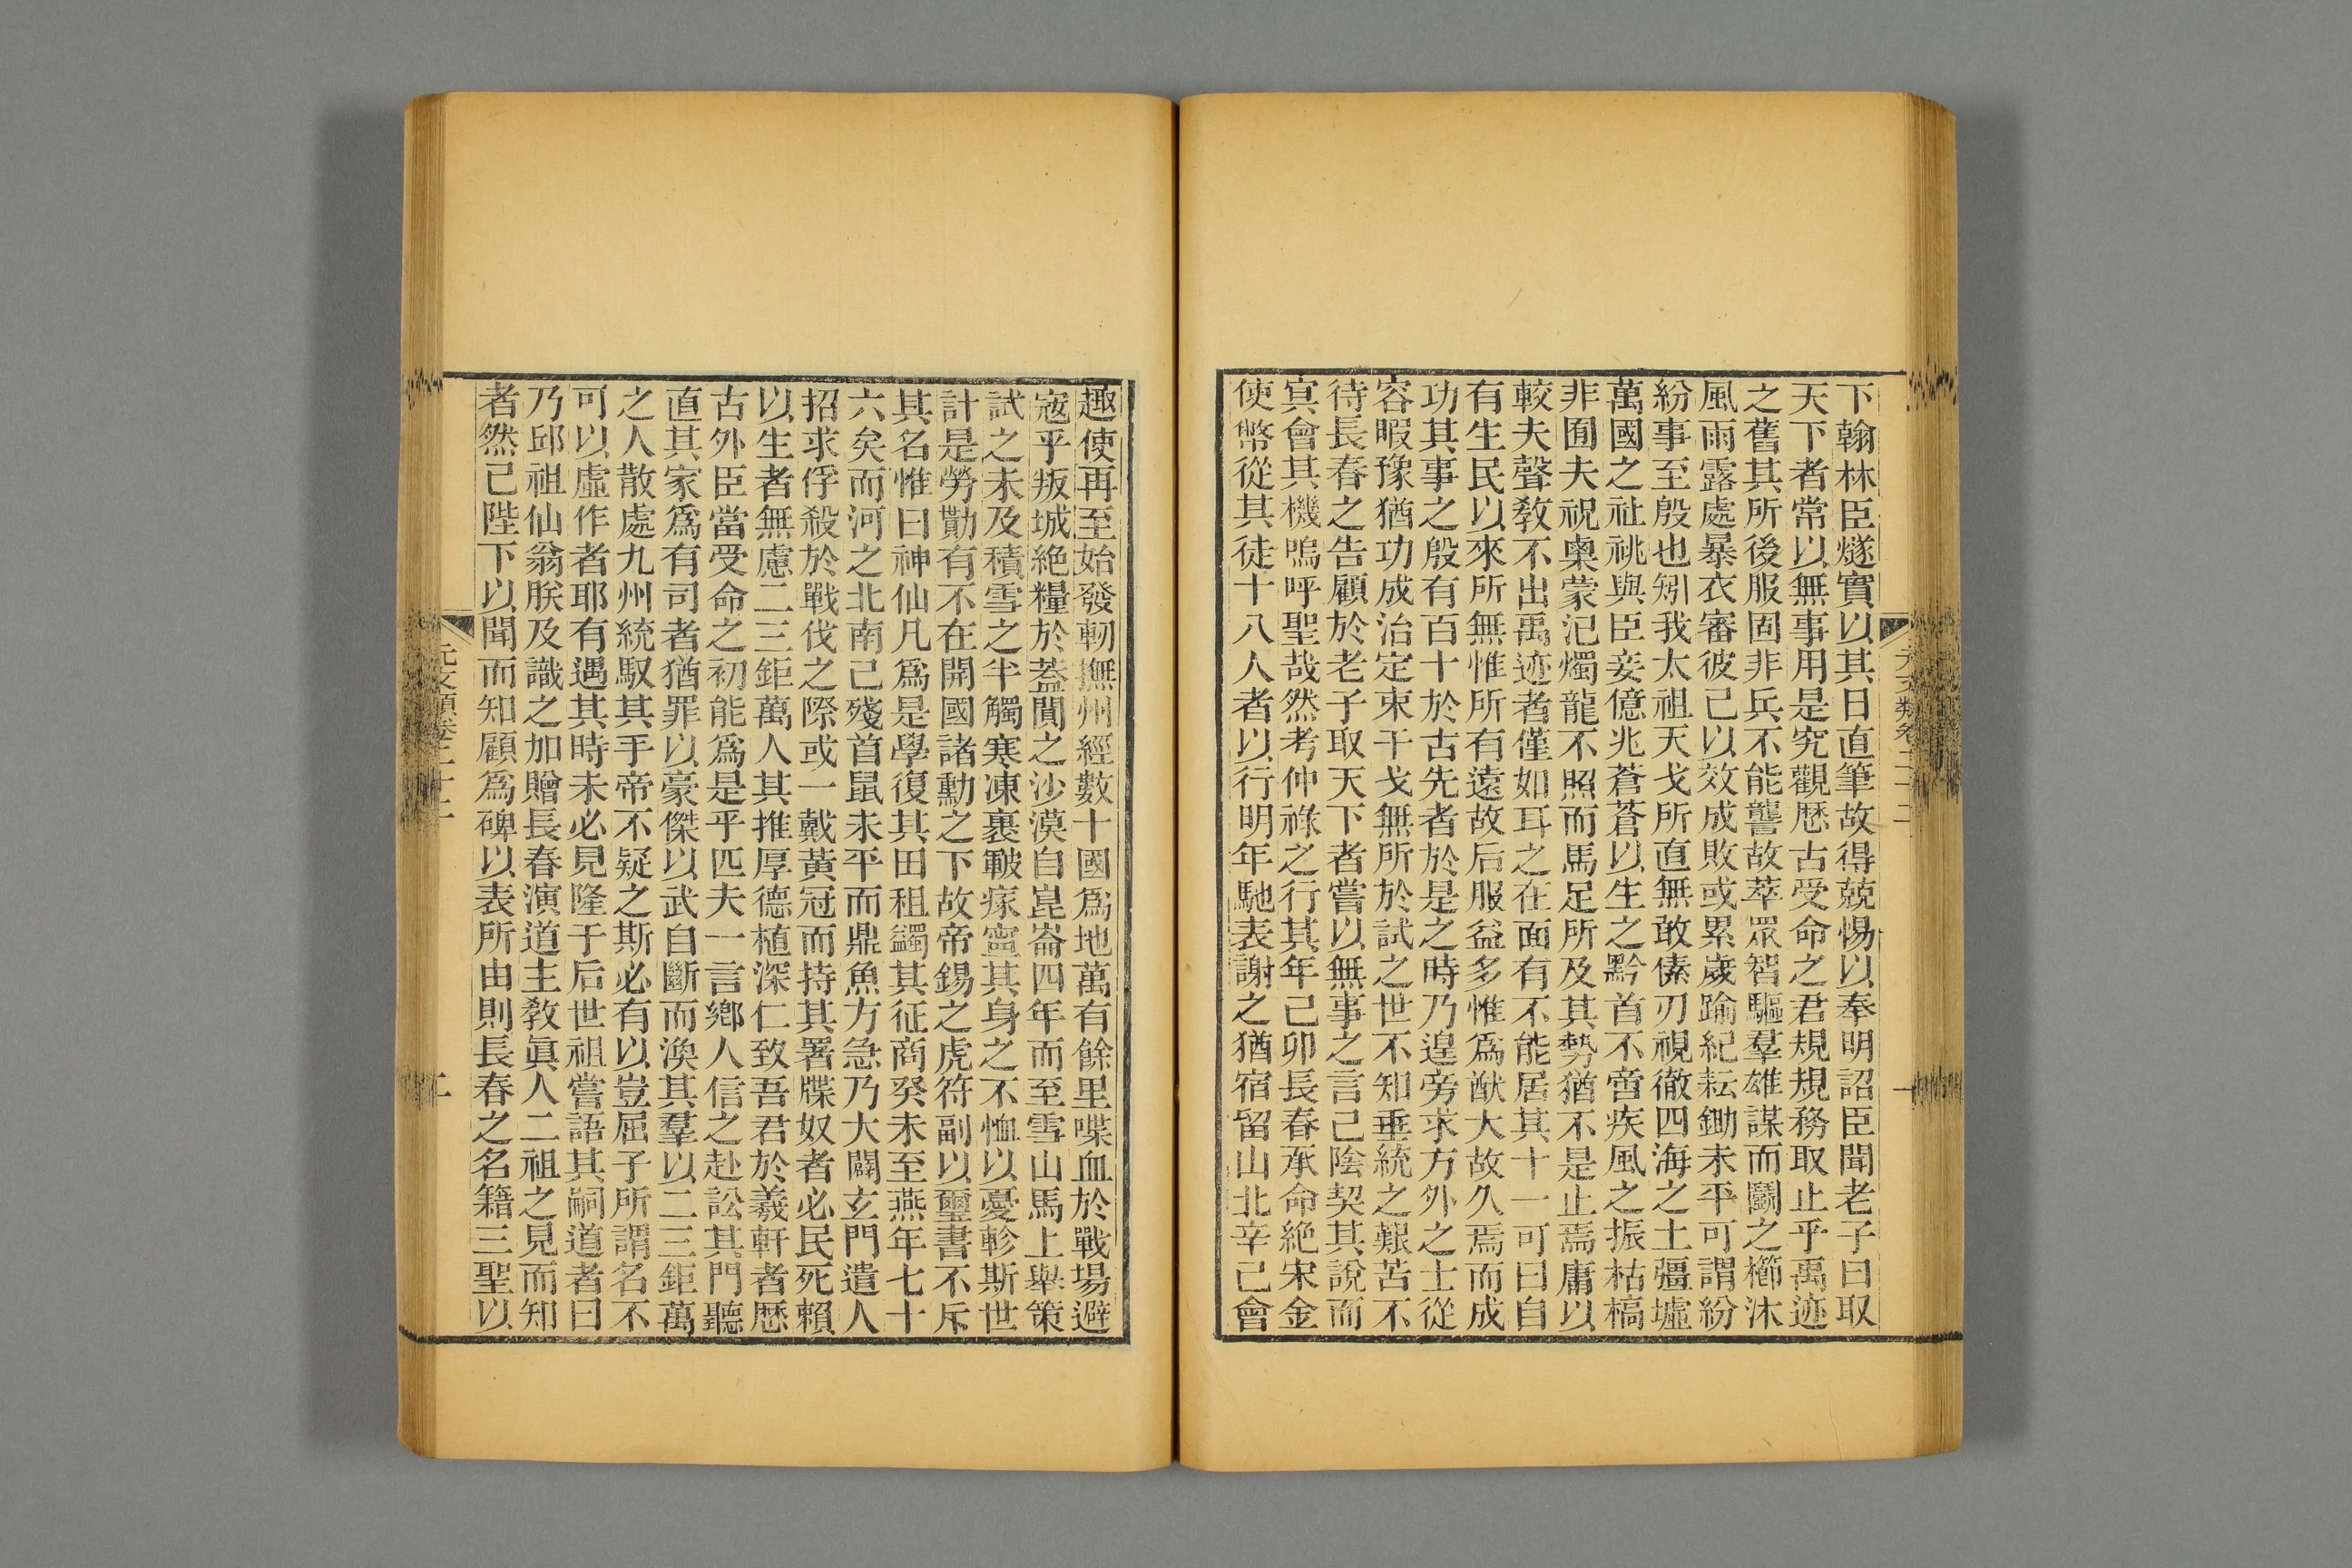 下翰林臣燧實以其日直筆故得兢惕以奉明詔臣聞老子曰取
天下者常以無事用是究觀歷古受命之君規規務取止乎禹迹
之舊其所後服固非兵不能讋故萃眾智驅羣雄謀而鬭之櫛沐
風雨露處暴衣審彼己以效成敗或累歲踰紀耘鋤未平可謂紛
紛事至殷也矧我太祖天戈所直無敢傃刃視徹四海之土疆墟
萬國之社祧與臣妾億兆蒼蒼以生之黔首不啻疾風之振枯槁
非囿夫祝奧蒙汜燭龍不照而馬足所及其勢猶不是止焉庸以
較夫聲敎不出禹迹者僅如耳之在面有不能居其十一可曰自
有生民以來所無惟所有遠故后服益多惟爲猷大故久焉而成
功其事之殷有百十於古先者於是之時乃遑旁求方外之士從
容暇豫猶功成治定束干戈無所於試之世不知垂統之艱苦不
待長春之告顧於老子取天下者嘗以無事之言己陰契其說而
㝠會其機嗚呼聖哉然考仲祿之行其年己卯長春承命絕宋金
使幣從其徒十八人者以行明年馳表謝之猶宿留山北辛己會
趣使再至始發軔撫州經數十國爲地萬有餘里喋血於戰場避
寇乎叛城絕糧於葢閴之沙漠自崑崙四年而至雪山馬上舉策
試之未及積雪之半觸寒凍裹皸瘃寧其身之不恤以憂軫斯世
計是勞勩有不在開國諸勳之下故帝錫之虎符副以璽書不斥
其名惟曰神仙凡爲是學復其田租蠲其征商癸未至燕年七十
六矣而河之北南己殘首鼠未平而鼎魚方急乃大闢玄門遣人
招求俘殺於戰伐之際或一戴黃冠而持其署牒奴者必民死賴
以生者無慮二三鉅萬人其推厚德植深仁致吾君於羲軒者歷
古外臣當受命之初能爲是乎匹夫一言鄉人信之赴訟其門聽
直其家爲有司者猶罪以豪傑以武自斷而渙其羣以二三鉅萬
之人散處九州統馭其手帝不疑之斯必有以豈屈子所謂名不
可以虛作者耶有遇其時未必見隆于后世祖嘗語其嗣道者曰
乃邱祖仙翁朕及識之加贈長春演道主敎眞人二祖之見而知
者然己陛下以聞而知顧爲碑以表所由則長春之名籍三聖以
元文類卷二十二
二